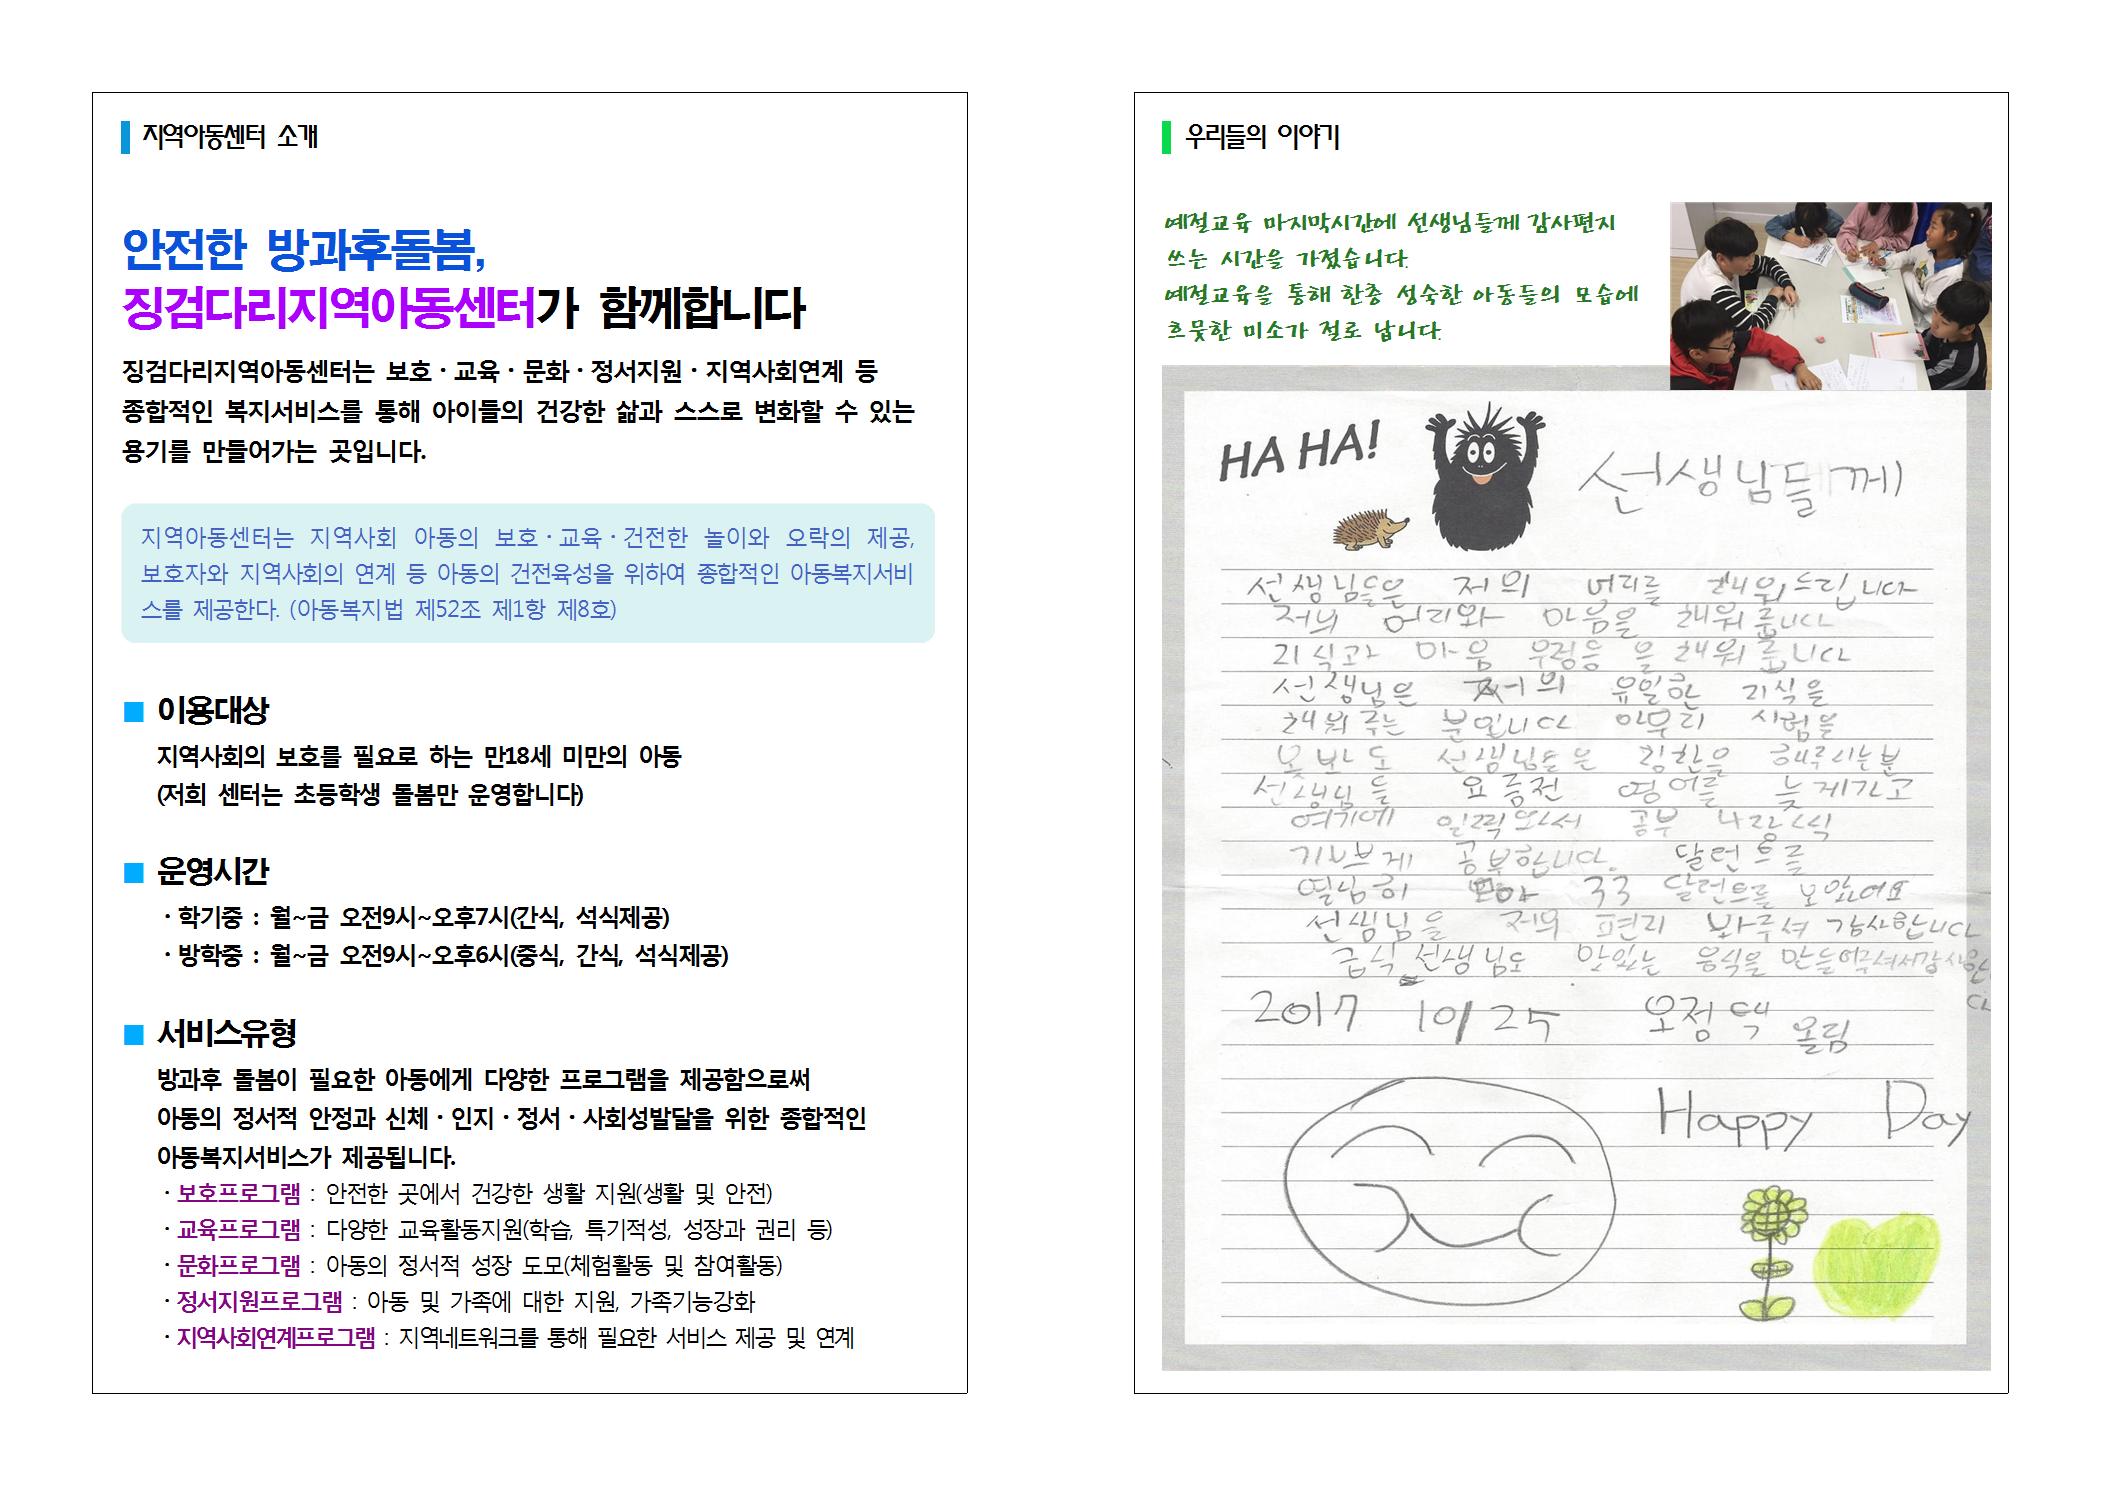 지역아동센터 소개
안전한 방과후돌봄,
징검다리지역아동센터가 함께합니다
징검다리지역아동센터는 보호·교육·문화·정서지원·지역사회연계 등
종합적인 복지서비스를 통해 아이들의 건강한 삶과 스스로 변화할 수 있는
용기를 만들어가는 곳입니다.
지역아동센터는 지역사회 아동의 보호·교육·건전한 놀이와 오락의 제공,
보호자와 지역사회의 연계 등 아동의 건전육성을 위하여 종합적인 아동복지서비
스를 제공한다. (아동복지법 제52조 제1항 제8호)
■ 이용대상
지역사회의 보호를 필요로 하는 만18세 미만의 아동
(저희 센터는 초등학생 돌봄만 운영합니다)
■ 운영시간
· 학기중 : 월~금 오전9시~오후7시(간식, 석식제공)
· 방학중 : 월~금 오전9시~오후6시(중식, 간식, 석식제공)
■ 서비스유형
방과후 돌봄이 필요한 아동에게 다양한 프로그램을 제공함으로써
아동의 정서적 안정과 신체·인지·정서·사회성발달을 위한 종합적인
아동복지서비스가 제공됩니다.
· 보호프로그램 : 안전한 곳에서 건강한 생활 지원(생활 및 안전)
· 교육프로그램 : 다양한 교육활동지원(학습, 특기적성, 성장과 권리 등)
· 문화프로그램 : 아동의 정서적 성장 도모(체험활동 및 참여활동)
· 정서지원프로그램 : 아동 및 가족에 대한 지원, 가족기능강화
· 지역사회연계프로그램 : 지역네트워크를 통해 필요한 서비스 제공 및 연계
우리들의 이야기
예절교육 마지막시간에 선생님들께 감사편지
쓰는 시간을 가졌습니다.
예절교육을 통해 한층 성숙한 아동들의 모습에
흐뭇한 미소가 절로 납니다.
HA HA!
선생님들께
선생님들은 저의 머리를 채워드립니다
저의 머리와 마음을 채워줍니다
지식과 마음 을 채워줍니다
선생님은 저의 유일한 지식을
채워주는 분입니다 아무리 시험을
못봐도 선생님들은 칭찬을 해주시는분
선생님들 요즘전 영어를 늦게가고
여기에 일찍와서 공부
기쁘게 공부합니다. 달런트를
열심히 모아 33 달런트를 모았어요
선생님을 저의 편리 봐주셔 감사합니다
급식 선생님도 맛있는 음식을 만들어주셔서감사합니다
2017 10/25 오정택 올림
Happy Day